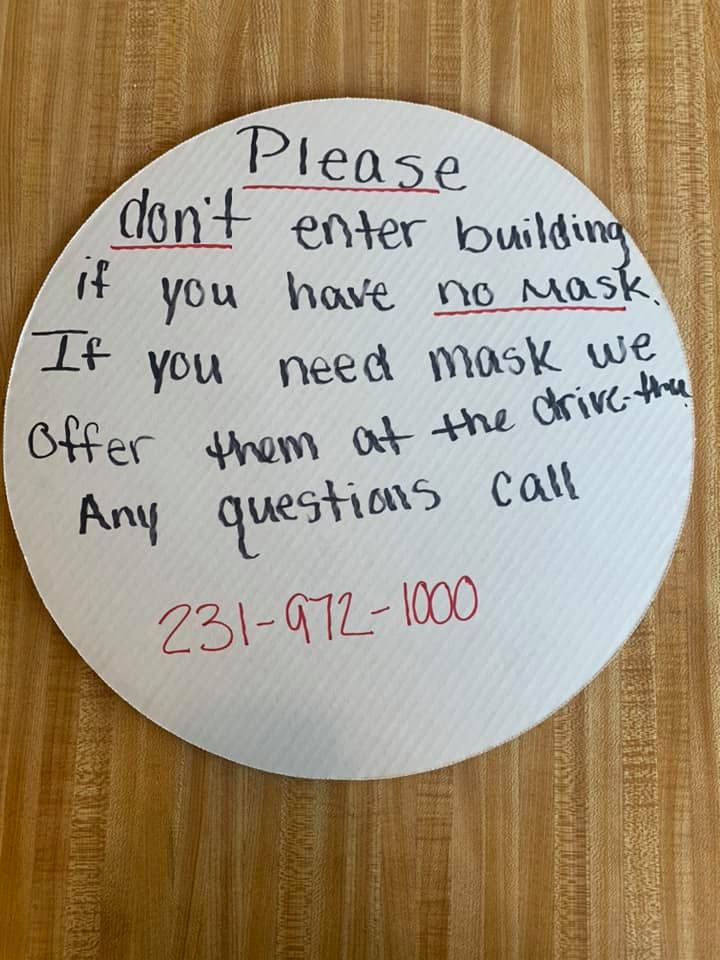 Please
don't enter building
if you have no mask.
If you need mask we
offer them at the drive-thru.
Any questions call
231-972-1000